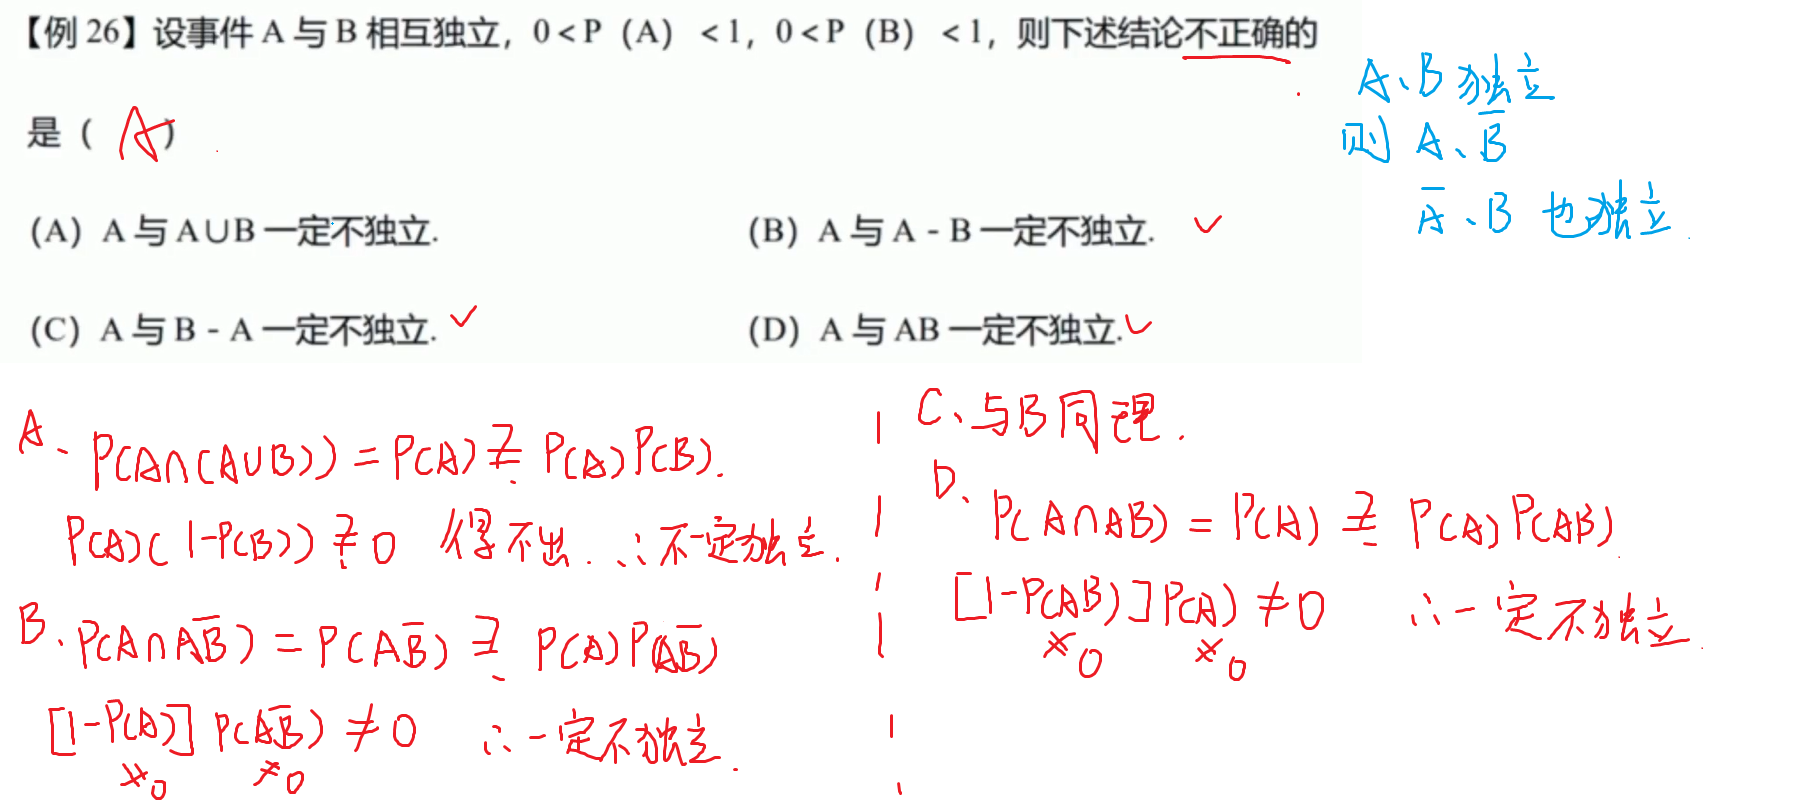 【例 26】设事件 A 与 B 相互独立，0 < P（A） < 1，0 < P（B） < 1，则下述结论不正确的
是（ A ）
(A) A 与 A∪B 一定不独立.
(B) A 与 A - B 一定不独立. ✓
(C) A 与 B - A 一定不独立. ✓
(D) A 与 AB 一定不独立. ✓
A、B 独立
则 A、B̅
A̅、B 也独立.
A、P(A∩(A∪B)) = P(A) ≟ P(A)P(B).
P(A)(1-P(B)) ≟ 0 得不出. ∴不一定独立.
B、P(A∩AB̅) = P(AB̅) ≟ P(A)P(AB̅)
[1-P(A)] P(AB̅) ≠ 0 ∴一定不独立.
≠0 ≠0
C、与B同理.
D、P(A∩AB) = P(A) ≟ P(A)P(AB).
[1-P(AB)]P(A) ≠ 0 ∴一定不独立.
≠0 ≠0